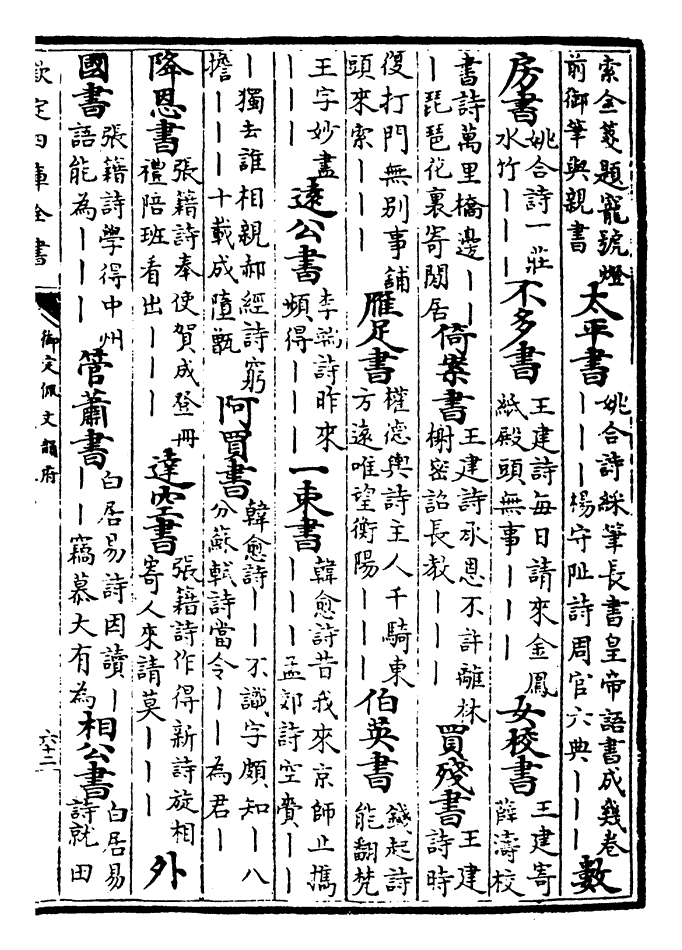 索金箋題寵號燈
前御筆與親書
太平書
姚合詩綵筆長書皇帝語書成幾卷
｜｜｜楊守阯詩周官六典｜｜｜
數
房書
姚合詩一莊
水竹｜｜｜
不多書
王建詩每日請來金鳳
紙殿頭無事｜｜｜
女校書
王建寄
薛濤校
書詩萬里橋邊｜｜
｜琵琶花裏寄閒居
倚案書
王建詩承恩不許離牀
榭密詔長教｜｜｜
買殘書
王建
詩時
復打門無別事鋪
頭來索｜｜｜
雁足書
權德輿詩主人千騎東
方遠唯望衡陽｜｜｜
伯英書
錢起詩
能翻梵
王字妙盡
｜｜｜
遠公書
李端詩昨來
頻得｜｜｜
一束書
韓愈詩昔我來京師止攜
｜｜｜孟郊詩空賷｜｜
｜獨去誰相親郝經詩窮
擔｜｜｜十載成墮甑
阿買書
韓愈詩｜｜不識字頗知｜八
分蘇軾詩當令｜｜為君｜
降恩書
張籍詩奉使賀成登冊
禮陪班看出｜｜｜
達空書
張籍詩作得新詩旋相
寄人來請莫｜｜｜
外
國書
張籍詩學得中州
語能為｜｜｜
管蕭書
白居易詩因讀｜
｜｜竊慕大有為
相公書
白居易
詩就田
欽定四庫全書
御定佩文韻府
六十二